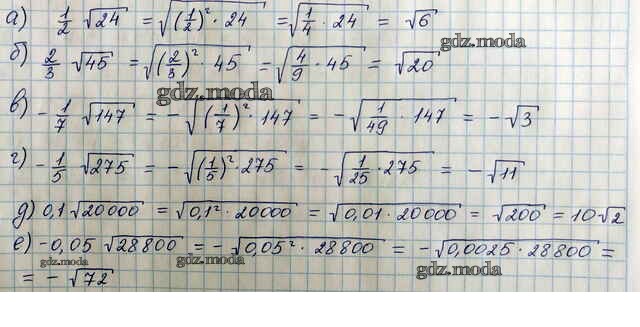 а) 1/2 √24 = √((1/2)² · 24) = √(1/4 · 24) = √6
gdz.moda
б) 2/3 √45 = √((2/3)² · 45) = √(4/9 · 45) = √20
gdz.moda
в) -1/7 √147 = -√((1/7)² · 147) = -√(1/49 · 147) = -√3
г) -1/5 √275 = -√((1/5)² · 275) = -√(1/25 · 275) = -√11
д) 0,1 √20000 = √(0,1² · 20000) = √(0,01 · 20000) = √200 = 10√2
е) -0,05 √28800 = -√(0,05² · 28800) = -√(0,0025 · 28800) =
gdz.moda gdz.moda gdz.moda
= -√72